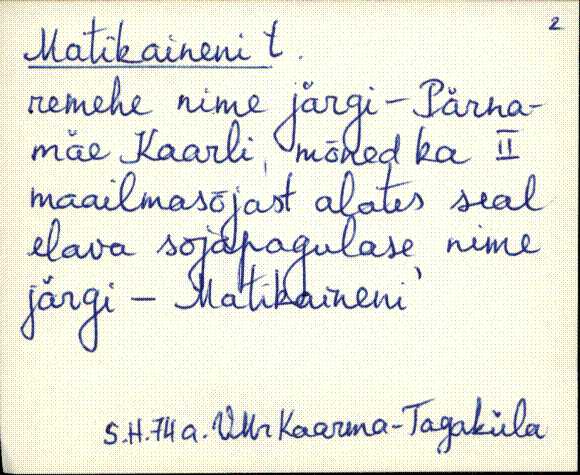 2
Matikaineni t.
remehe nime järgi - Pärna-
mäe Kaarli, mõned ka II
maailmasõjast alates seal
elava sõjapagulase nime
järgi - Matikaineni
S.H. 74 a. Kaarma-Tagaküla